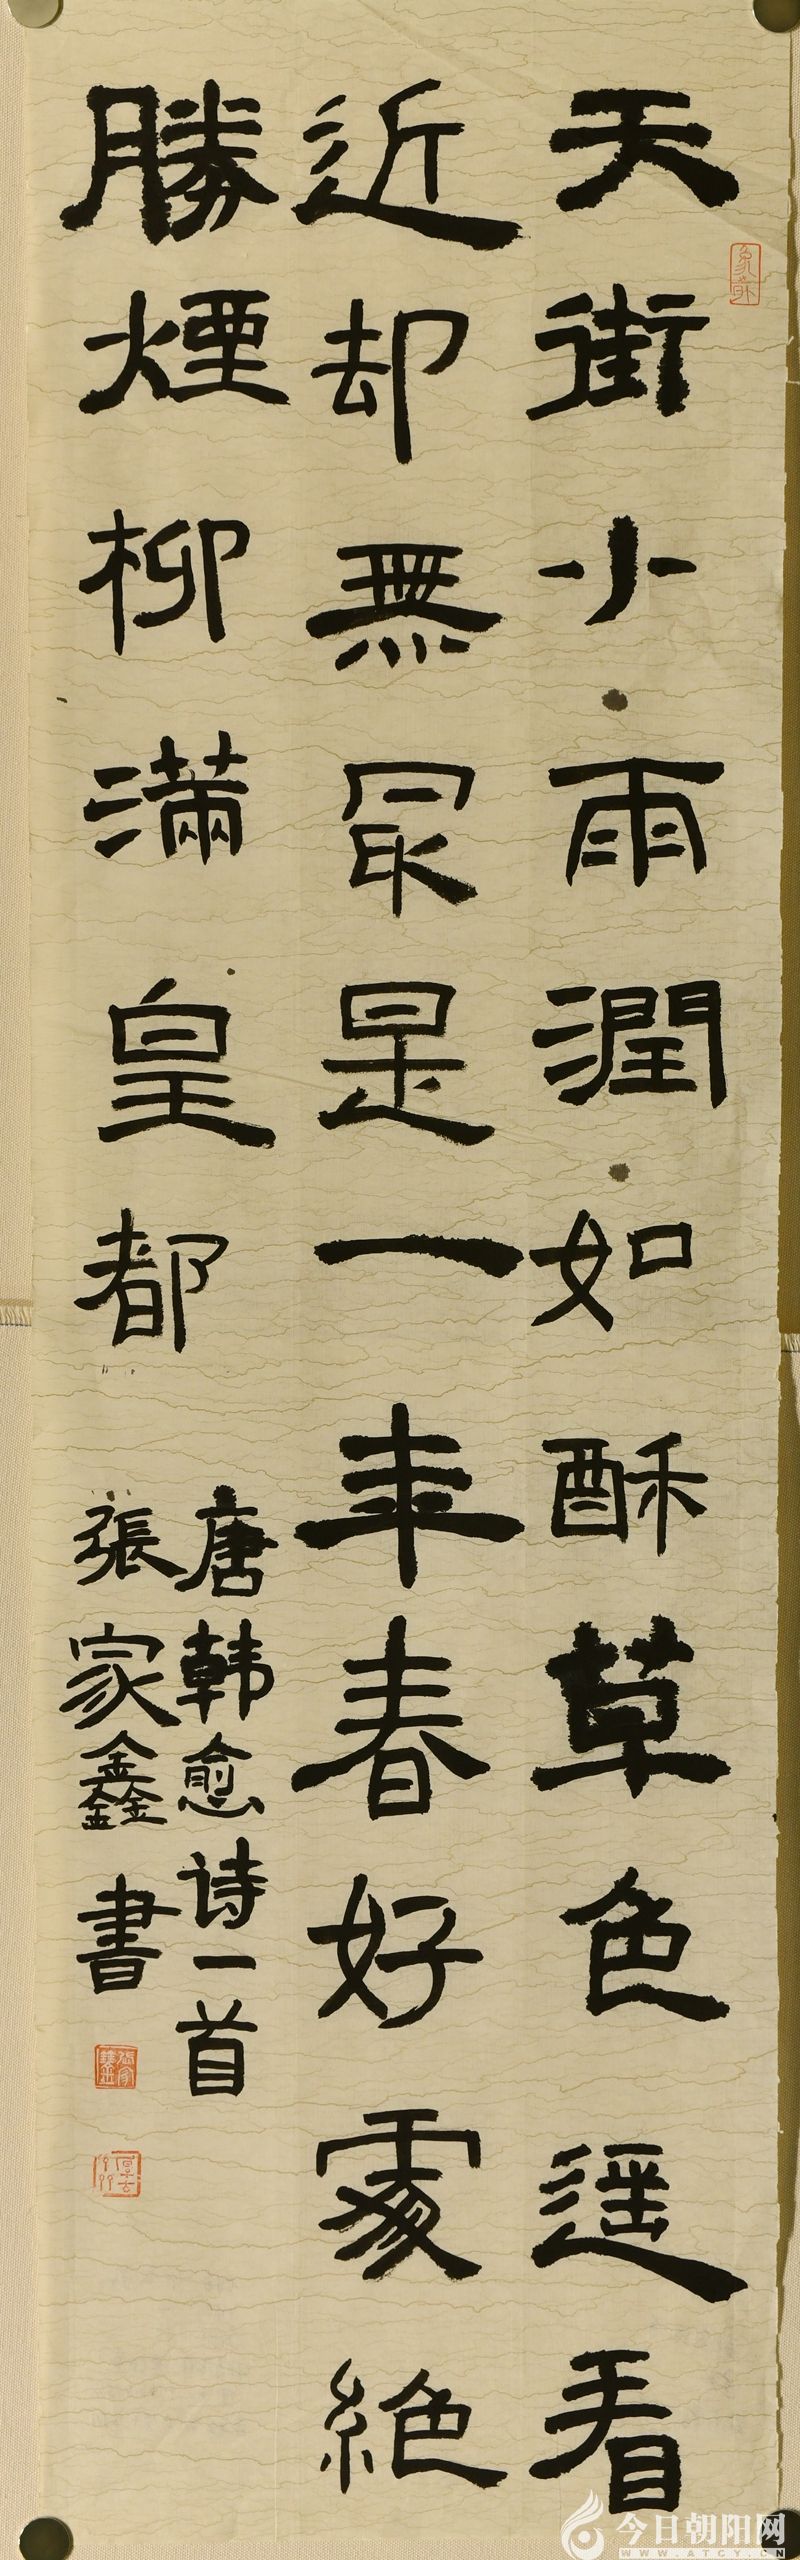 天街小雨潤如酥草色遥看
近却無冣是一年春好處絕
勝煙柳滿皇都
唐韩愈诗一首
張家鑫書
今日朝阳网
WWW.ATCY.CN